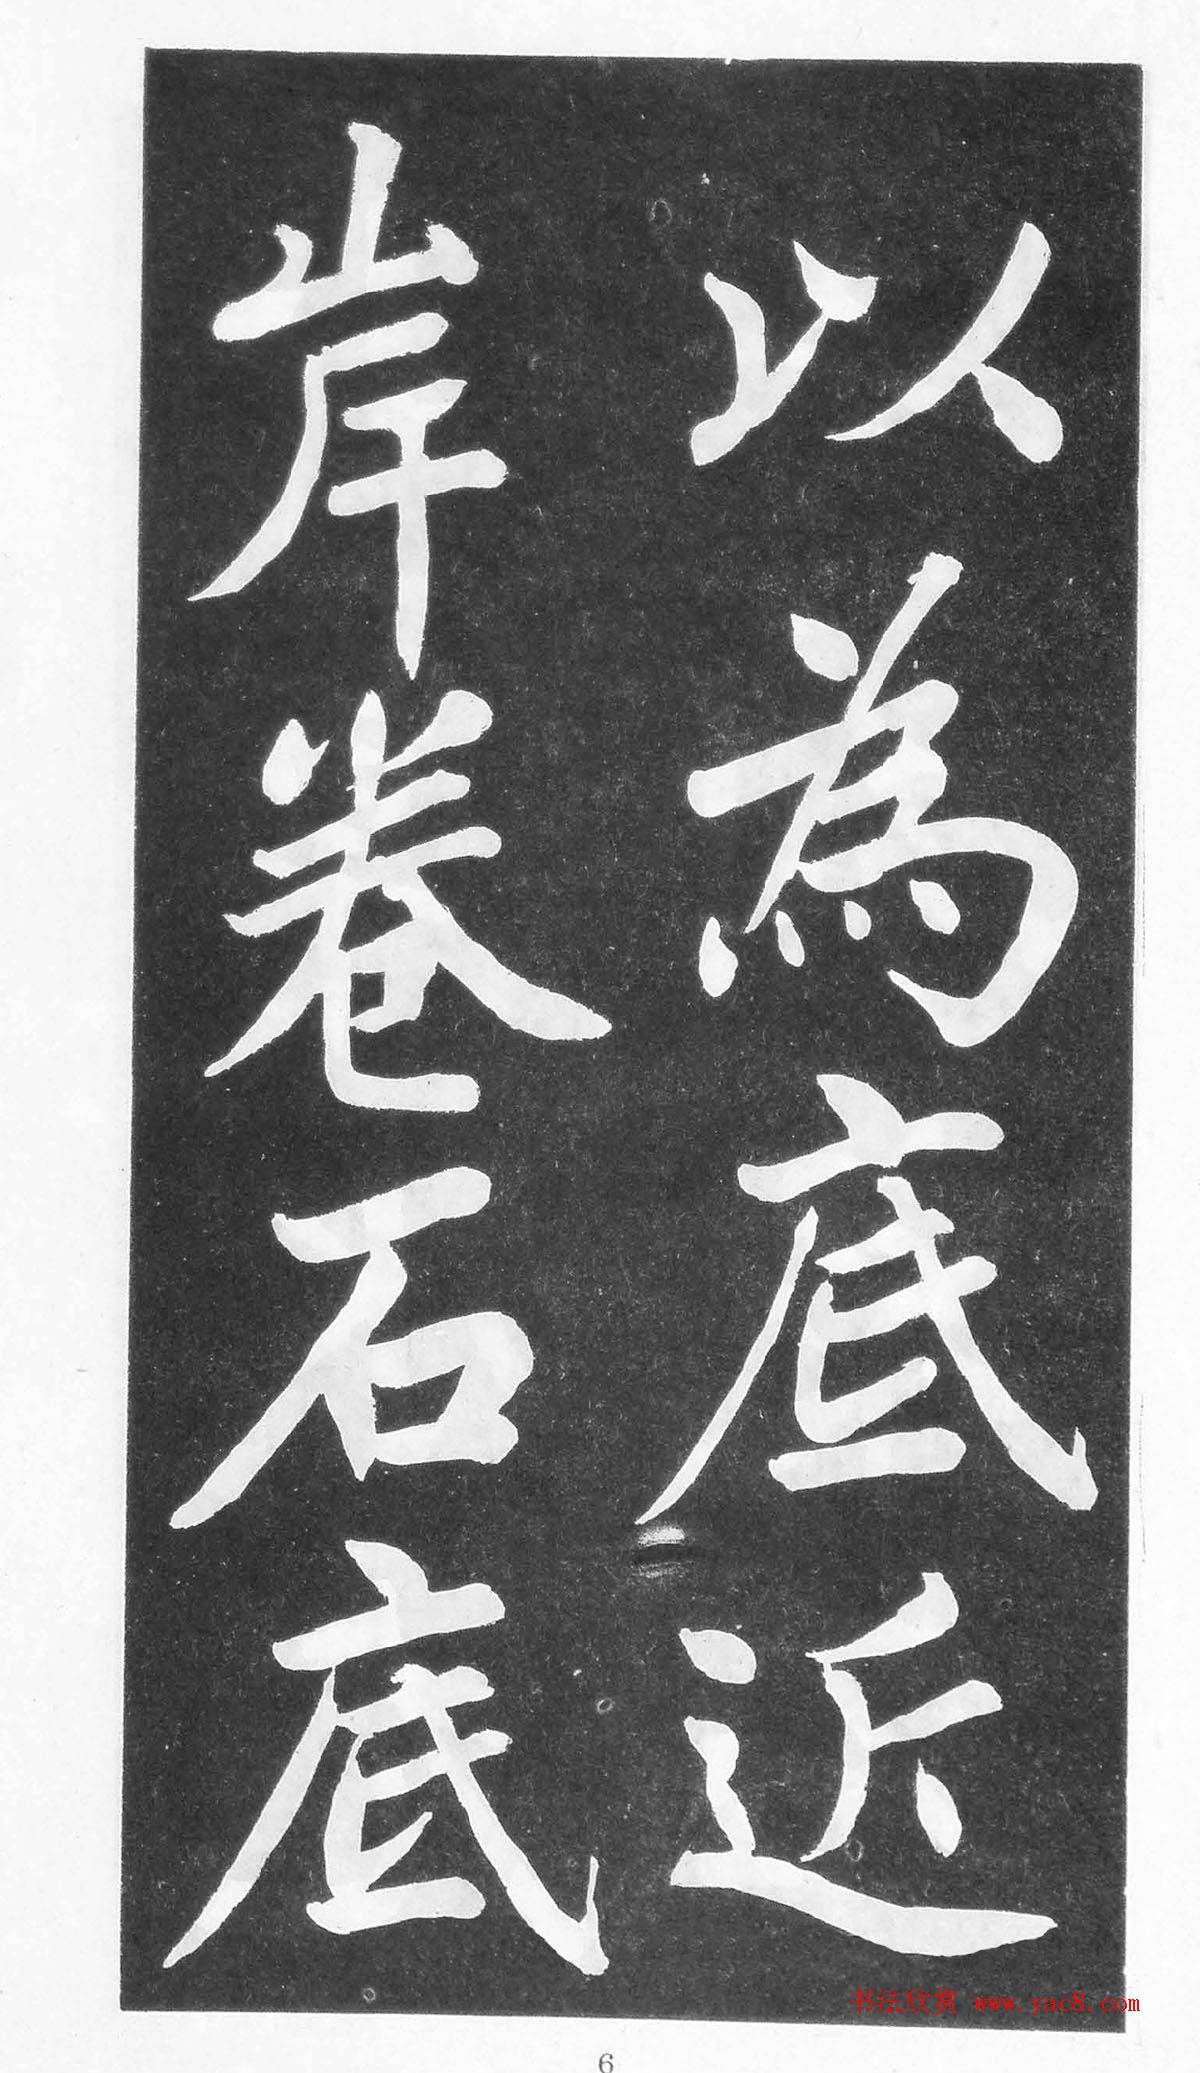 以為底近
岸卷石底
书法欣赏 www.yac8.com
6